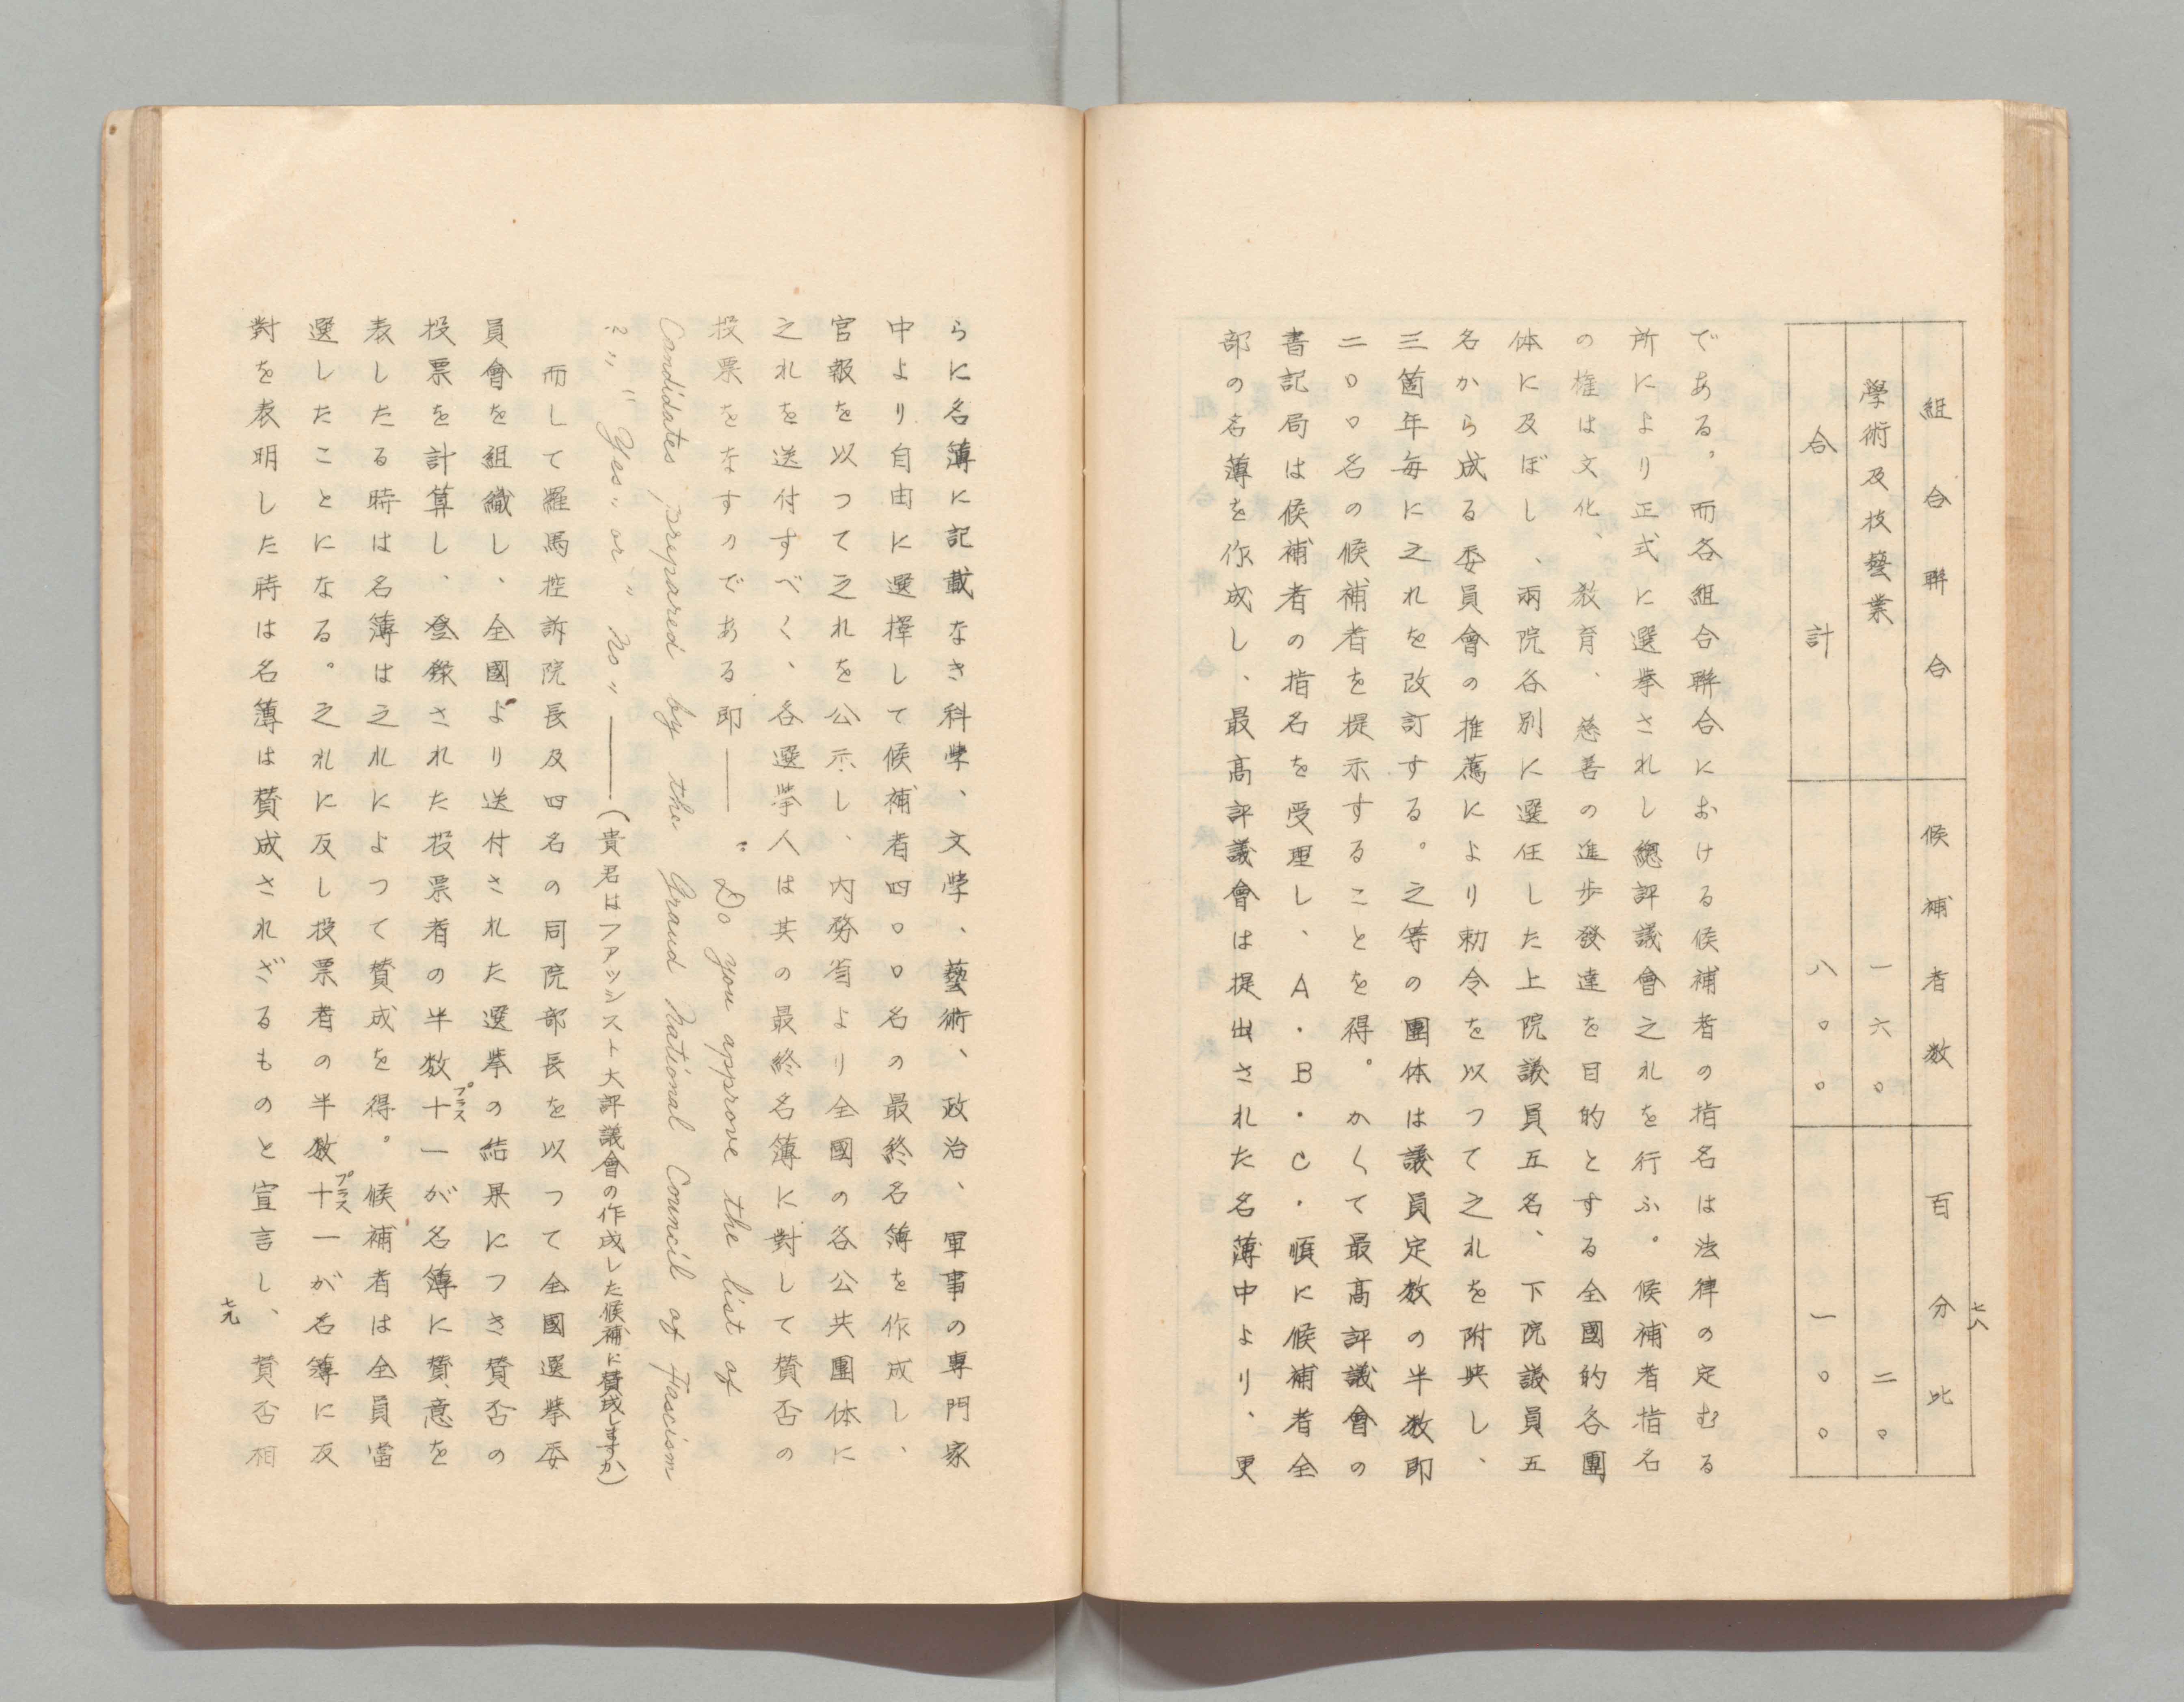 七八
組合聯合 候補者数 百分比
學術及技藝業 一六〇 二〇
合計 八〇〇 一〇〇
である，而各組合聯合における候補者の指名は法律の定むる
所により正式に選挙されし總評議會之れを行ふ。候補者指名
の権は文化、教育、慈善の進歩發達を目的とする全國的各團
体に及ぼし、兩院各別に選任した上院議員五名、下院議員五
名から成る委員會の推薦により勅令を以つて之れを附與し、
三箇年毎に之れを改訂する。之等の團体は議員定数の半数即
二〇〇名の候補者を提示することを得。かくて最高評議會の
書記局は候補者の指名を受理し、A・B・C・順に候補者全
部の名薄を作成し、最高評議會は提出された名薄中より、更
らに名薄に記載なき科学、文学、藝術、政治、軍事の専門家
中より自由に選擇して候補者四〇〇名の最終名簿を作成し、
官報を以つて之れを公示し、内務省より全國の各公共團体に
之れを送付すべく、各選挙人は其の最終名簿に對して賛否の
投票をなすのである即――〝Do you approve the list of
Condidates, prepared by the Grand National Council of Fascism
?〟〝Yes〟or〝No〟――(貴君はファッシスト大評議會の作成した候補に賛成しますか)
而して羅馬控訴院長及四名の同院部長を以つて全國選挙委
員會を組織し、全國より送付された選挙の結果につき賛否の
投票を計算し、登録された投票者の半数十プラス一が名簿に賛意を
表したる時は名簿は之れによつて賛成を得。候補者は全員當
選したことになる。之れに反し投票者の半数十プラス一が名簿に反
對を表明した時は名簿は賛成されざるものと宣言し、賛否相
七九